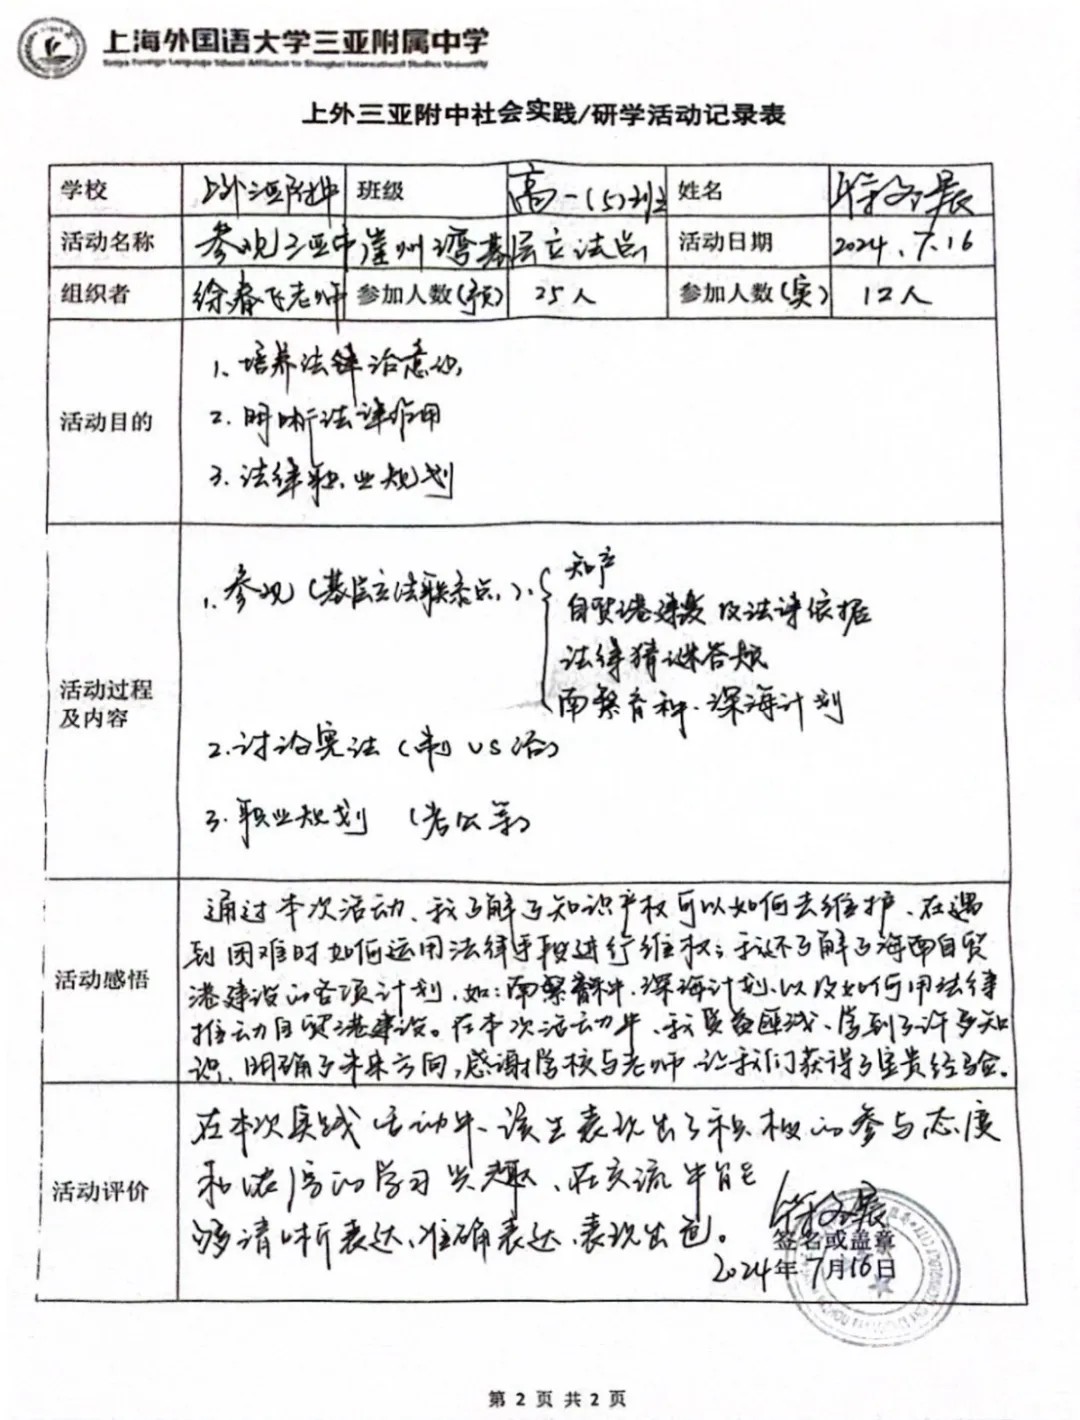 上海外国语大学三亚附属中学
Sanya Foreign Language School Affiliated to Shanghai International Studies University
上外三亚附中社会实践/研学活动记录表
学校 上外三亚附中 班级 高一(5)班 姓名 符文展
活动名称 参观三亚市崖州湾基层立法点 活动日期 2024.7.16
组织者 徐春飞老师 参加人数(预) 25人 参加人数(实) 12人
活动目的
1、培养法律治意识
2.明晰法律作用
3.法律职业规划
活动过程
及内容
1.参观(基层立法联系点):
知产
自贸港建设及法律依据
法律猜谜答题
南繁育种、深海计划
2.讨论宪法(制 VS 治)
3.职业规划 (考公等)
活动感悟
通过本次活动、我了解了知识产权可以如何去维护、在遇
到困难时如何运用法律手段进行维权；我还了解了海南自贸
港建设的各项计划,如:南繁育种、深海计划、以及如何用法律
推动自贸港建设。在本次活动中、我受益匪浅、学到了许多知
识、明确了未来方向,感谢学校与老师、让我们获得了宝贵经验。
活动评价
在本次实践活动中、该生表现出了积极的参与态度
和浓厚的学习兴趣、在交流中能
够清晰表达、准确表达、表现出色。
符文展
签名或盖章
2024年7月16日
第 2 页 共 2 页